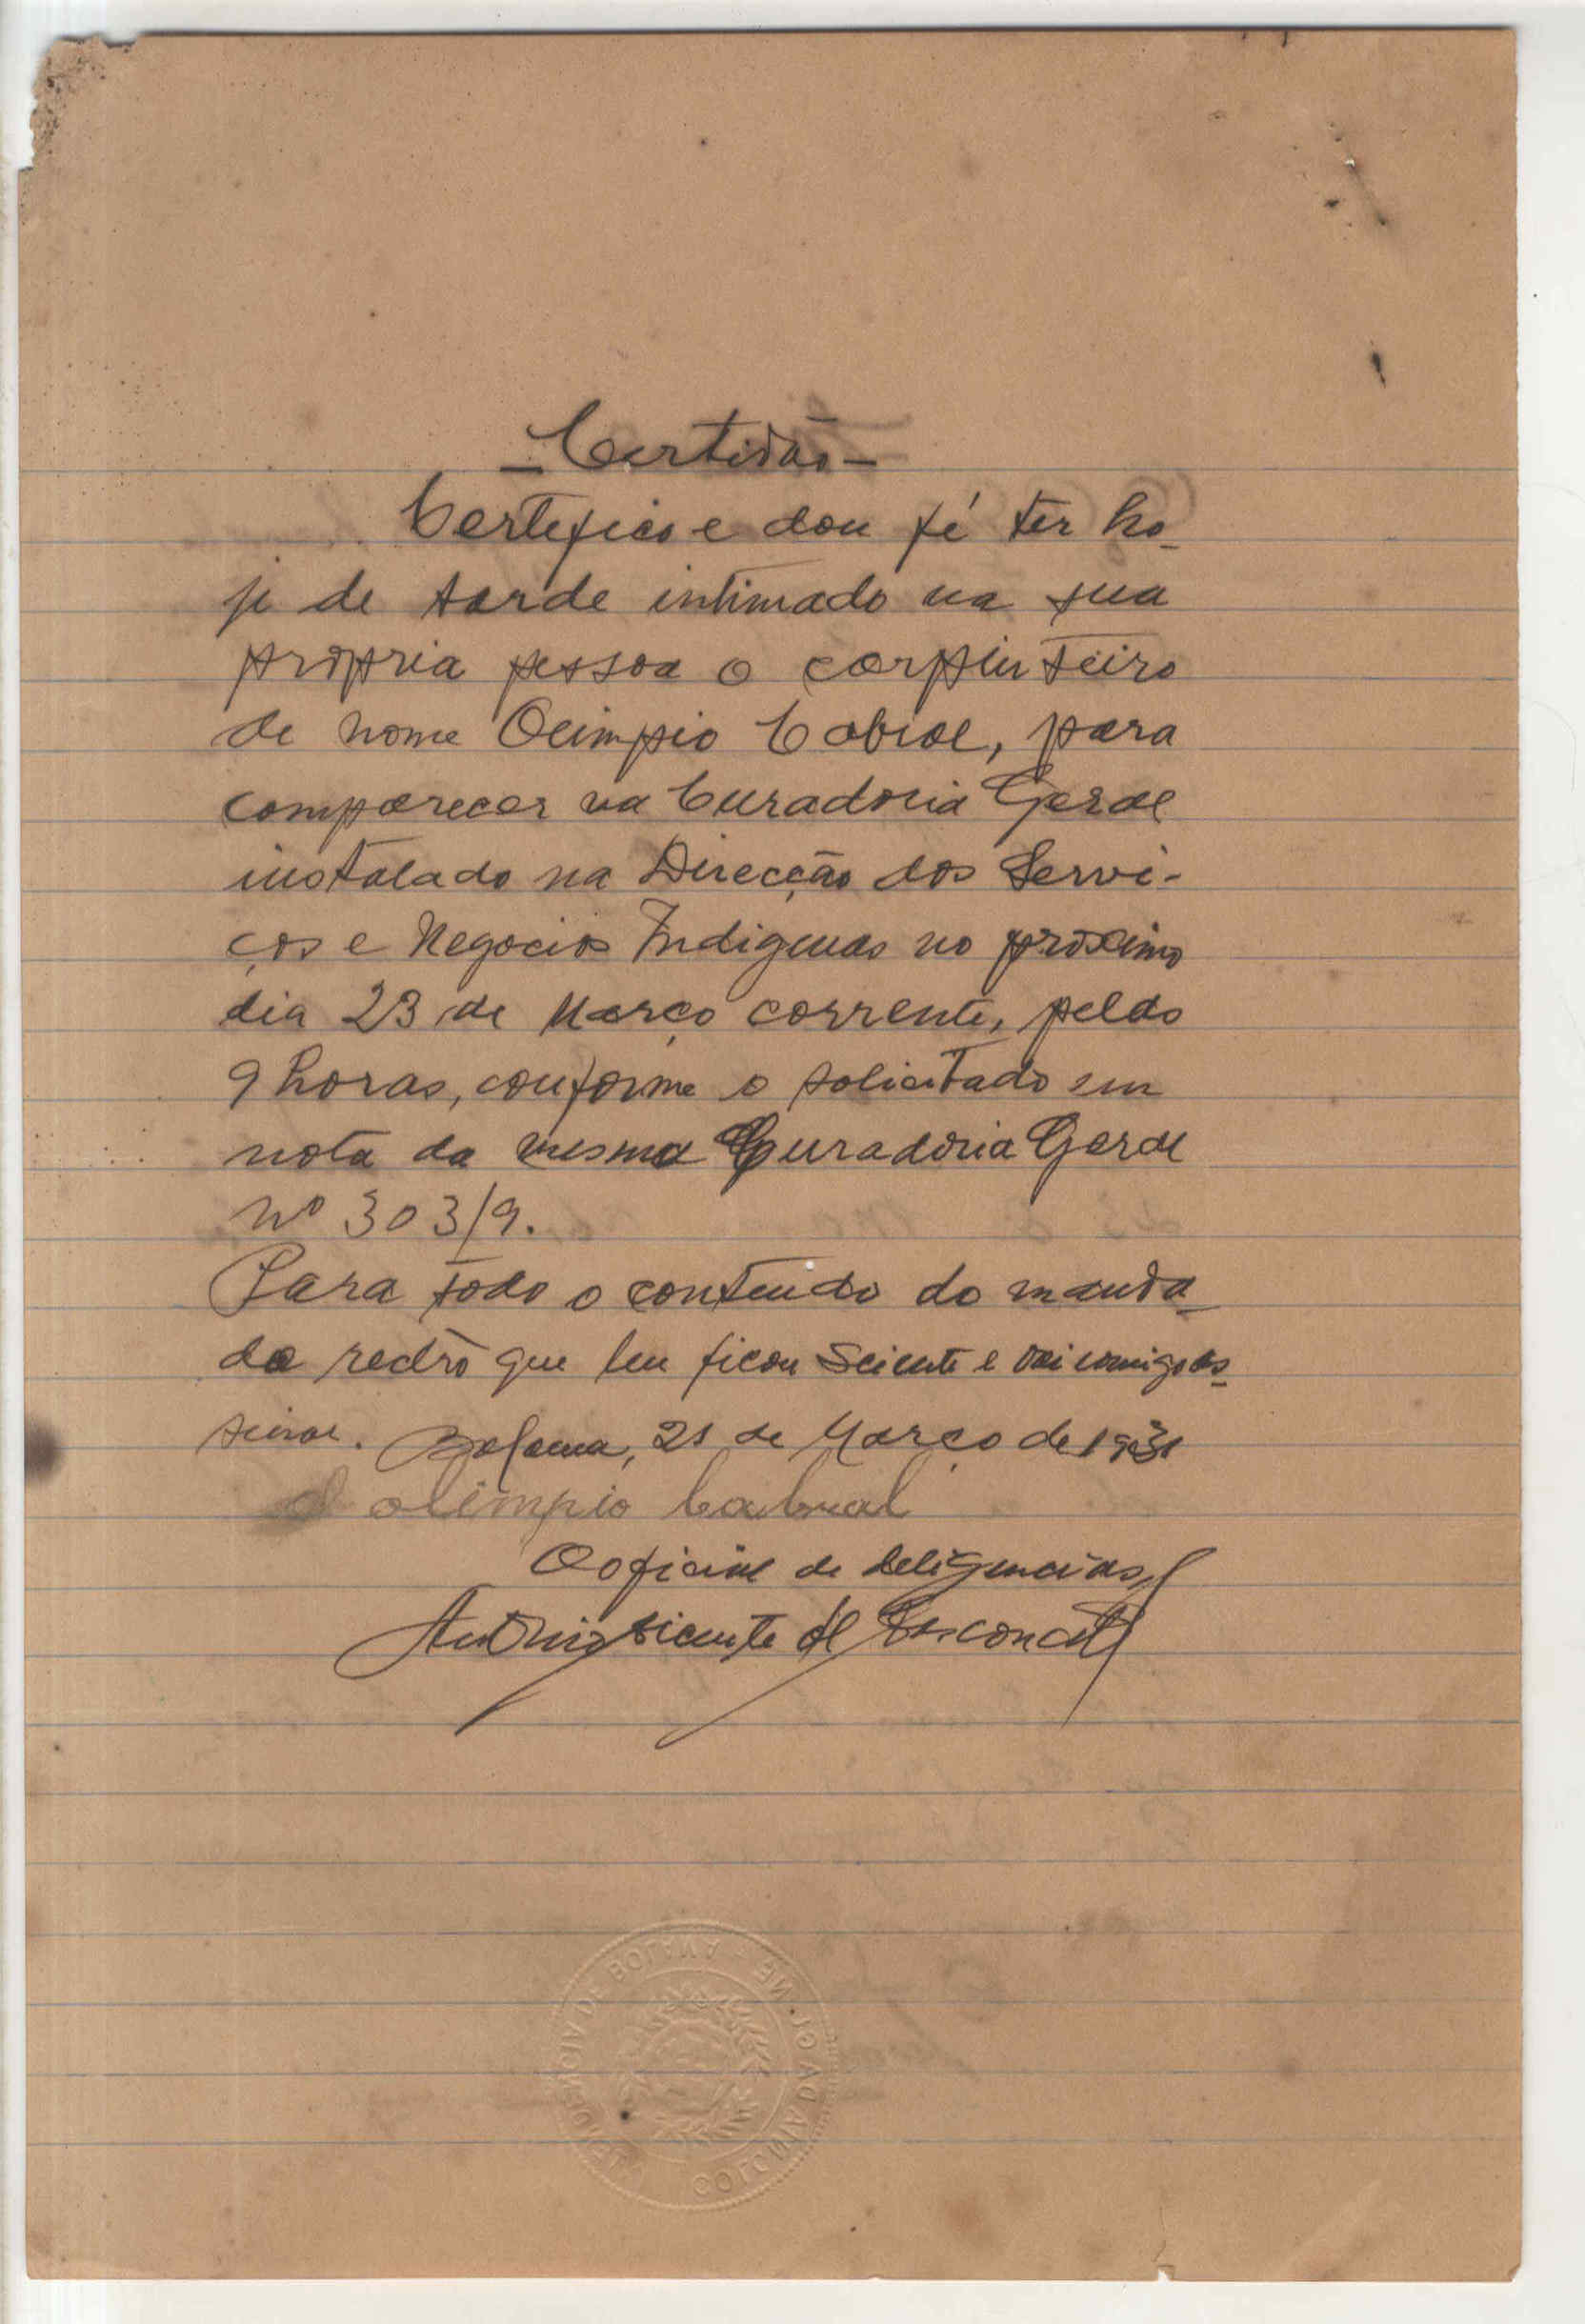 - Certidão -
Certefico e dou fé ter ho-
je de tarde intimado na sua
propria pessoa o carpinteiro
de nome Olimpio Cabral, para
comparecer na Curadoria Geral
instalado na Direcção dos Servi-
ços e Negocios Indigenas no proximo
dia 23 de Março corrente, pelas
9 horas, conforme o solicitado em
nota da mesma Curadoria Geral
nº 303/9.
Para todo o conteudo do manda-
do rectro que leu ficou sciente e vai comigo as-
sinar. Bolama, 21 de Março de 1931
olimpio Cabral
O oficial de deligencias,
Antonio Vicente de Vasconcelos
DE BOLAMA
COLONIA DA GUINÉ